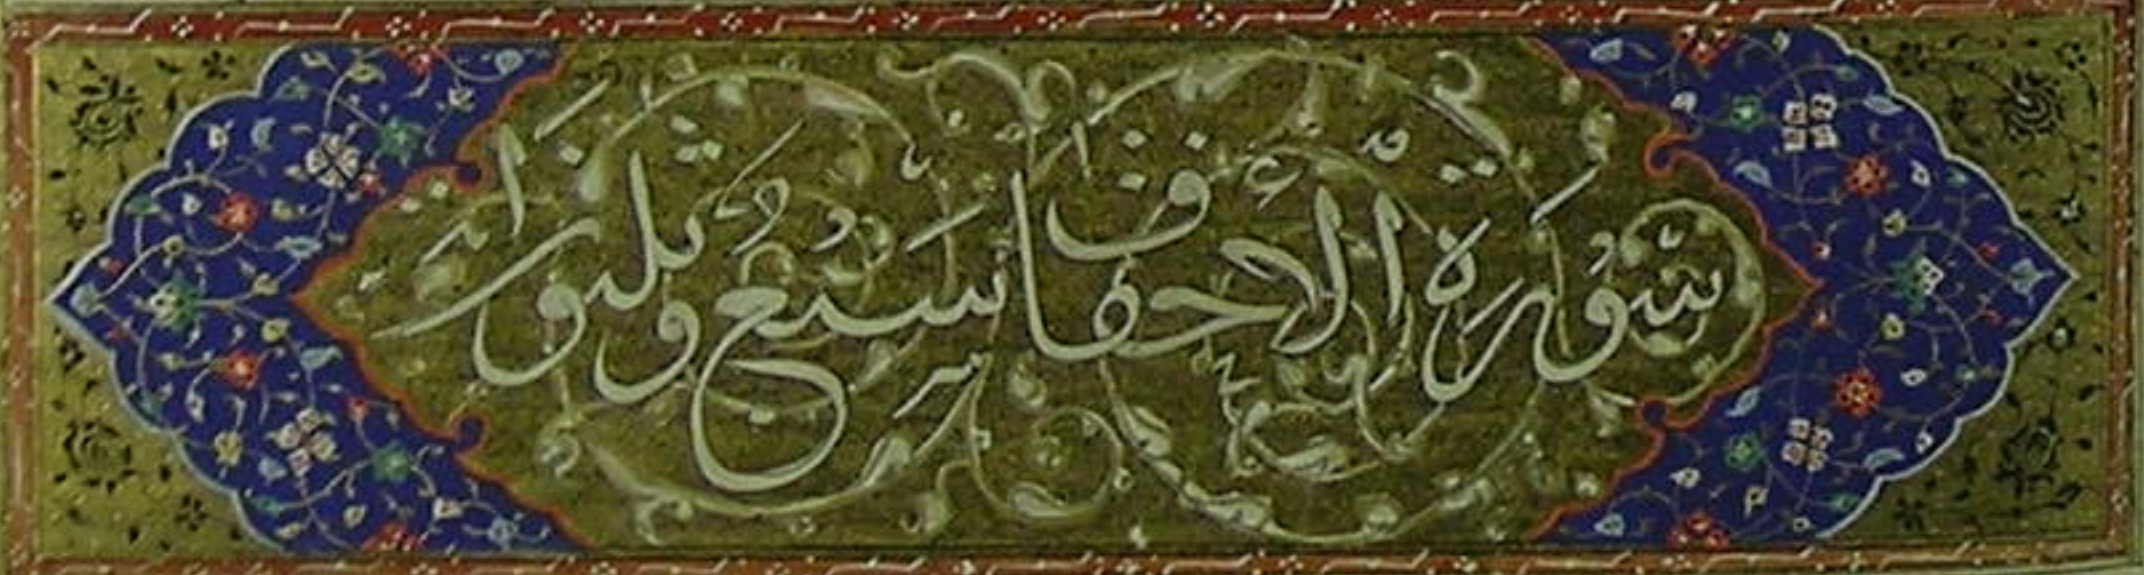 سُورَةُ الْأَحْقَافِ سَبْعُ وَثَلٰثُونَ